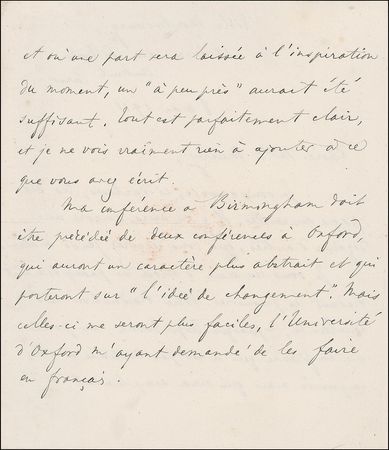 et où une part sera laissée à l'inspiration
du moment, un "à peu près" aurait été
suffisant. Tout est parfaitement clair,
et je ne vois vraiment rien à ajouter à ce
que vous avez écrit.
Ma conférence à Birmingham doit
être précédée de deux conférences à Oxford,
qui auront un caractère plus abstrait et qui
porteront sur "l'idée de changement". Mais
celles-ci me seront plus faciles, l'Université
d'Oxford m'ayant demandé de les faire
en français.